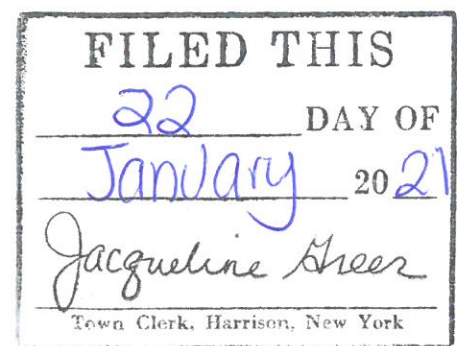 FILED THIS
22 DAY OF
January 2021
Jacqueline Greer
Town Clerk, Harrison, New York